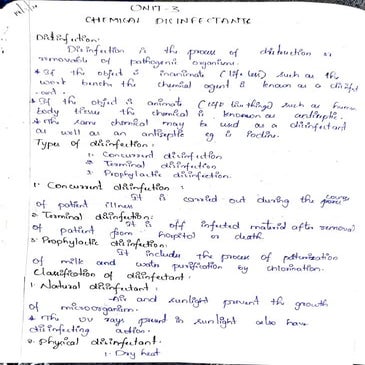 UNIT - 3
CHEMICAL DISINFECTANTS
Disinfection:
Disinfection is the process of distruction or
removable of pathogenic organism.
* If the object is inanimate (life less) such as the
work bench the chemical agent is known as a disinfect
-ant.
* If the object is animate (life live things) such as human
body tissue the chemical is known as antiseptic.
* The same chemical may be used as a disinfectant
as well as an antiseptic eg is Iodine.
Type of disinfection:
1. Concurrent disinfection
2. Terminal disinfection
3. Prophylactic disinfection
1. Concurrent disinfection:
It is carried out during the course
of patient illness
2. Terminal disinfection:
It is off infected material after removal
of patient from hospital or death.
3. Prophylactic disinfection:
It includes the process of pasturization
of milk and water purification by chlorination.
Classification of disinfectant.
1. Natural disinfectant:
Air and sunlight prevent the growth
of microorganism.
* The UV rays present in sunlight also have
disinfecting action.
2. Physical disinfectant.
1. Dry heat